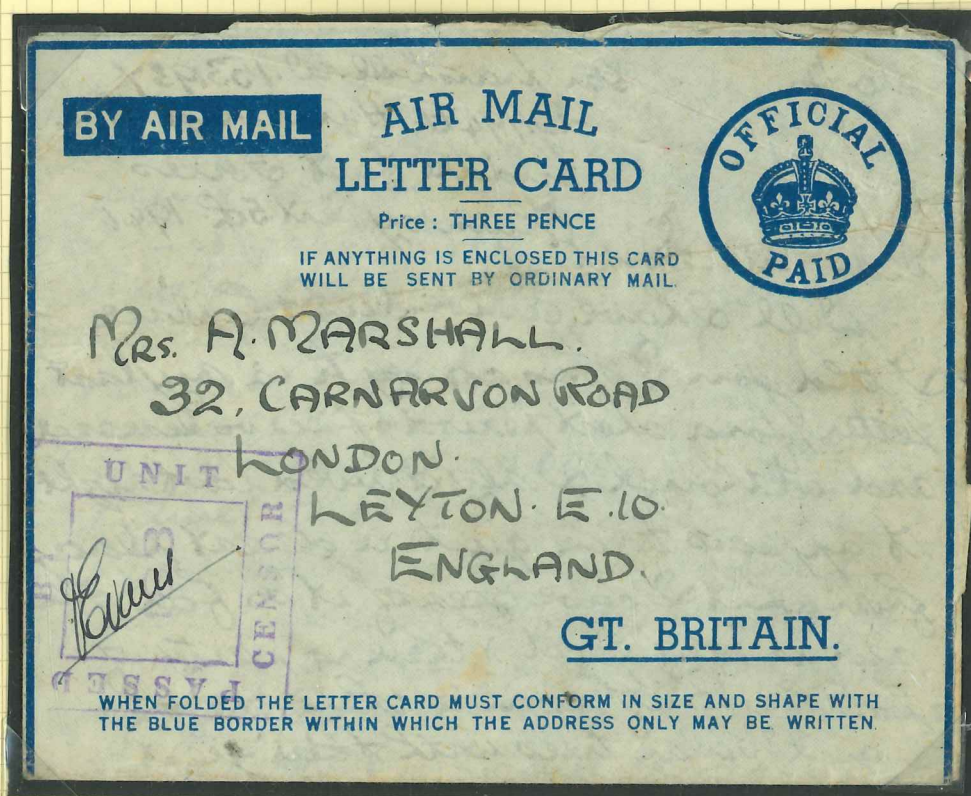 BY AIR MAIL
AIR MAIL
LETTER CARD
Price : THREE PENCE
IF ANYTHING IS ENCLOSED THIS CARD
WILL BE SENT BY ORDINARY MAIL.
OFFICIAL
PAID
Mrs. A. MARSHALL.
32, CARNARVON ROAD
LONDON.
LEYTON. E.10.
ENGLAND.
GT. BRITAIN.
UNIT
CENSOR
PASSED
BY
8
Evans
WHEN FOLDED THE LETTER CARD MUST CONFORM IN SIZE AND SHAPE WITH
THE BLUE BORDER WITHIN WHICH THE ADDRESS ONLY MAY BE WRITTEN.